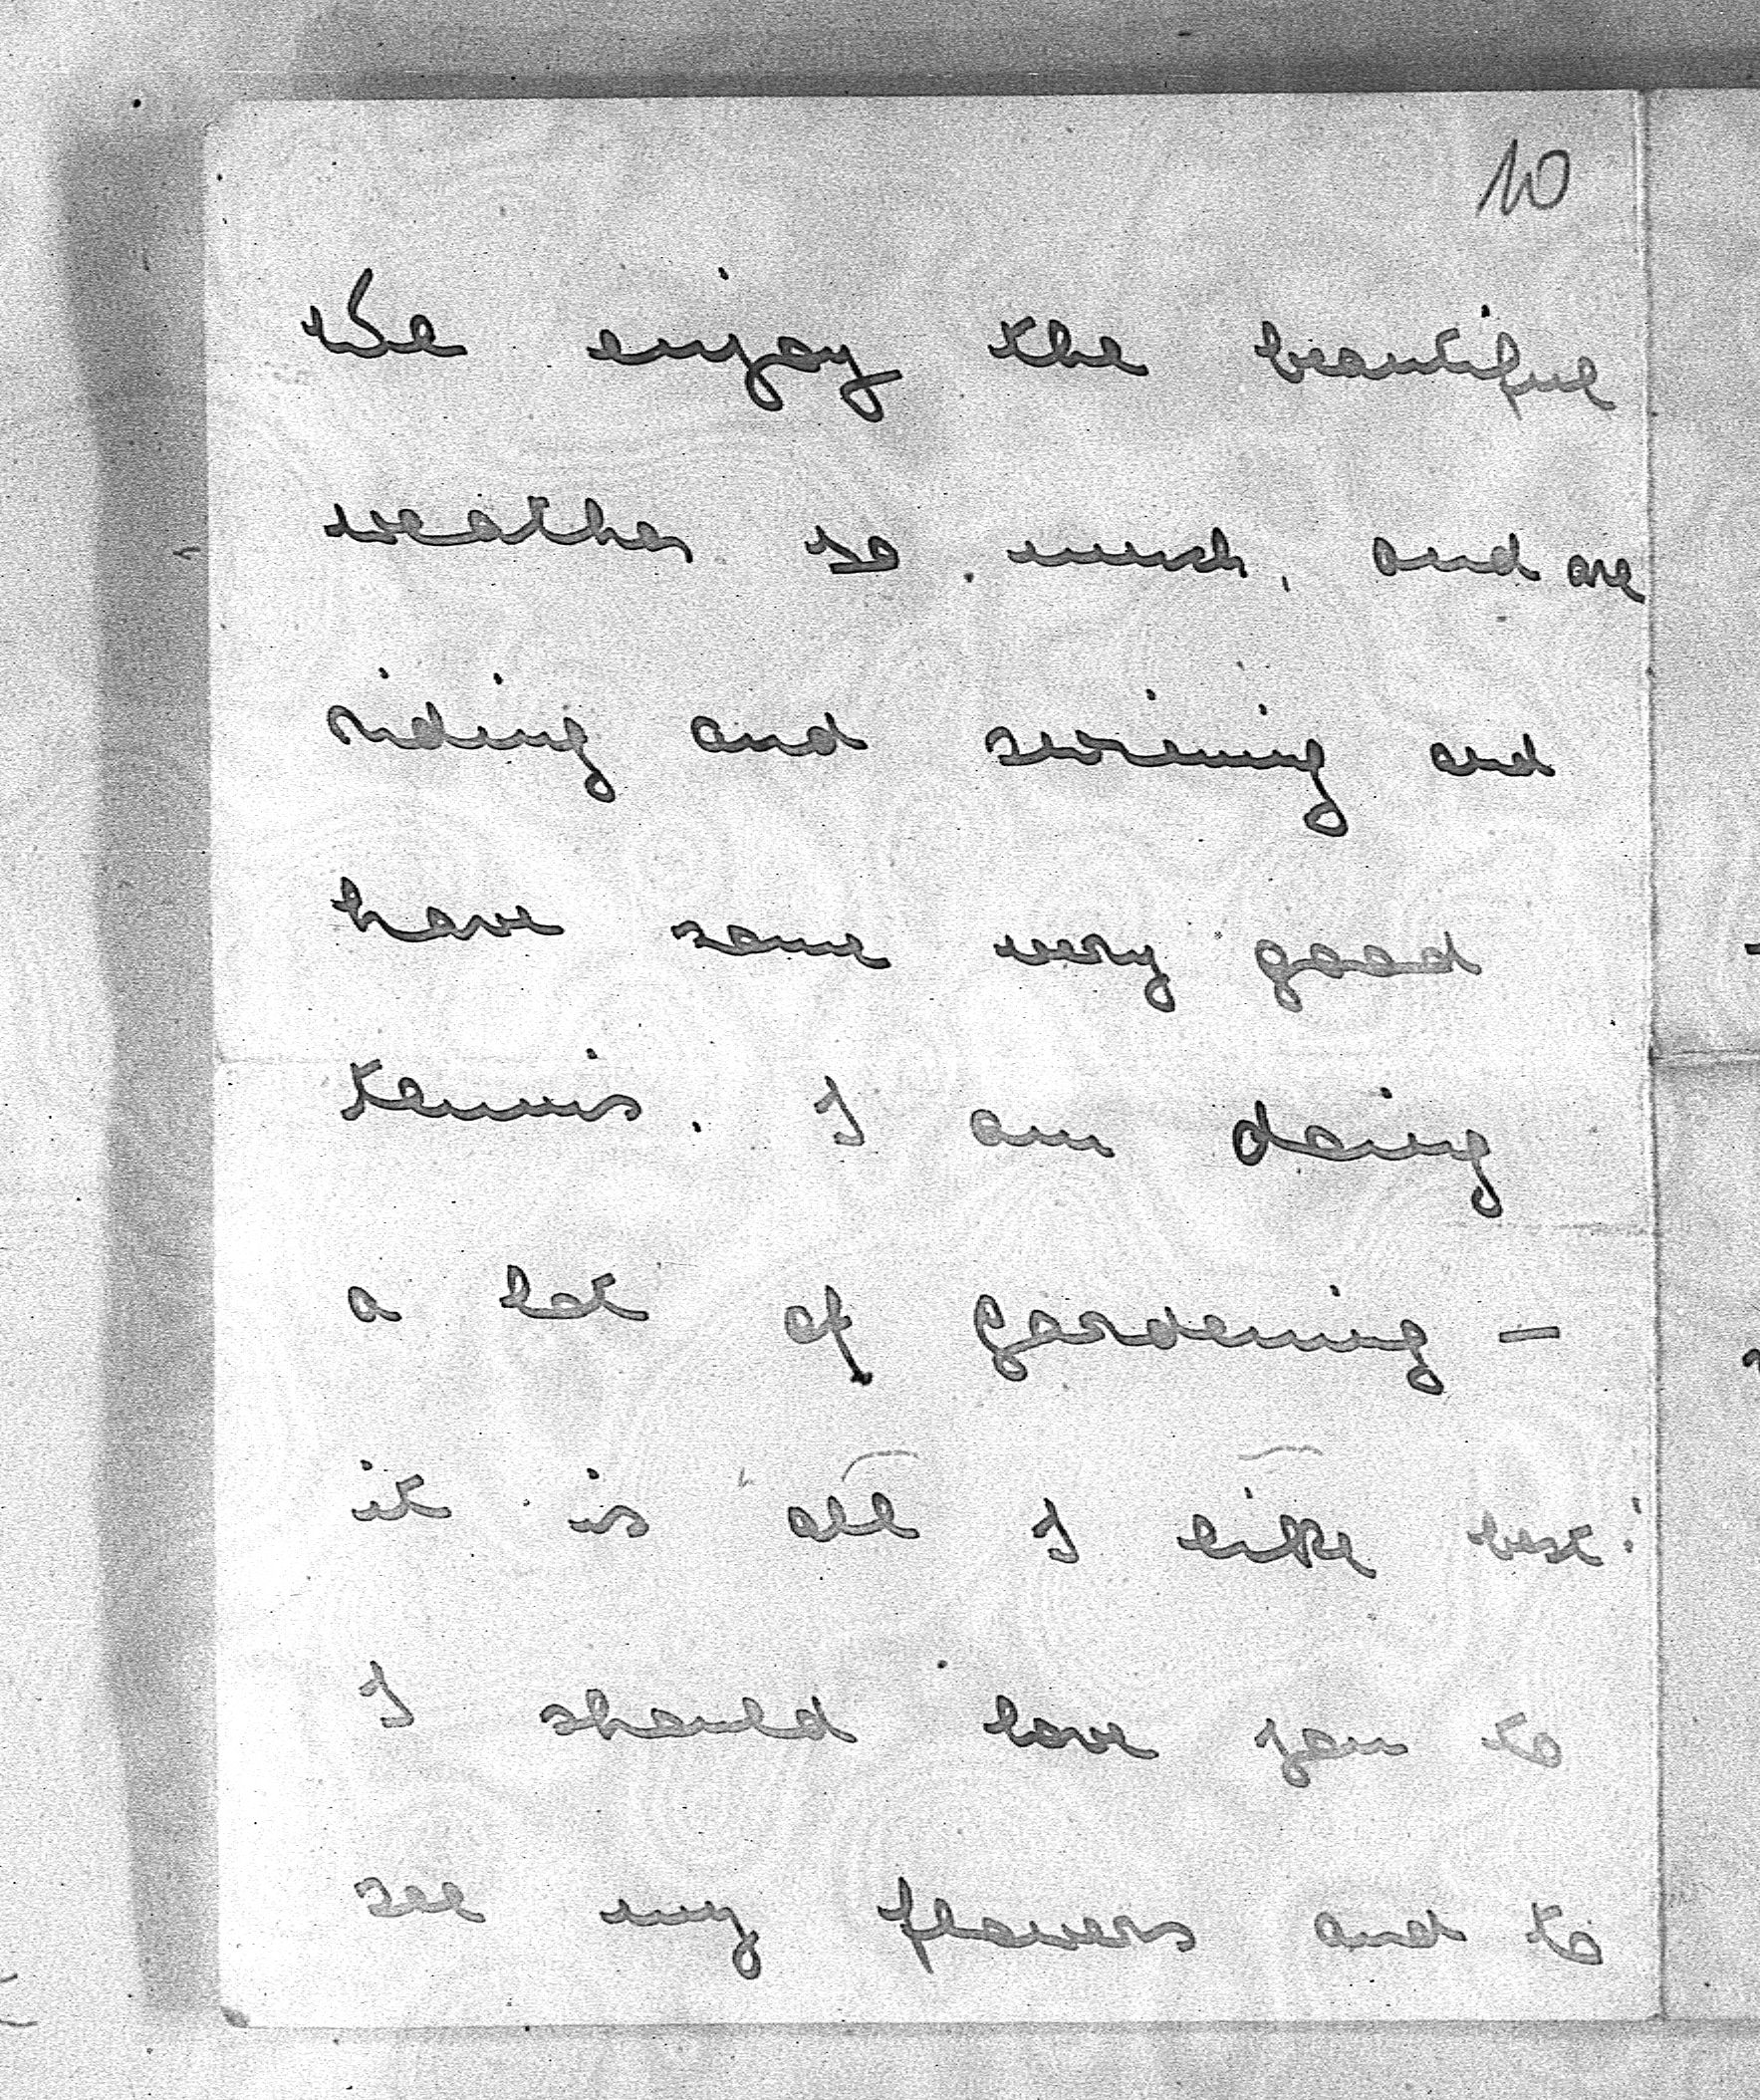 10
We enjoy the beautiful
weather so much, and are
riding and swiming and
have some very good
tennis. I am doing
a lot of gardening —
it is all I like best!
I should love you to
see my flowers and to